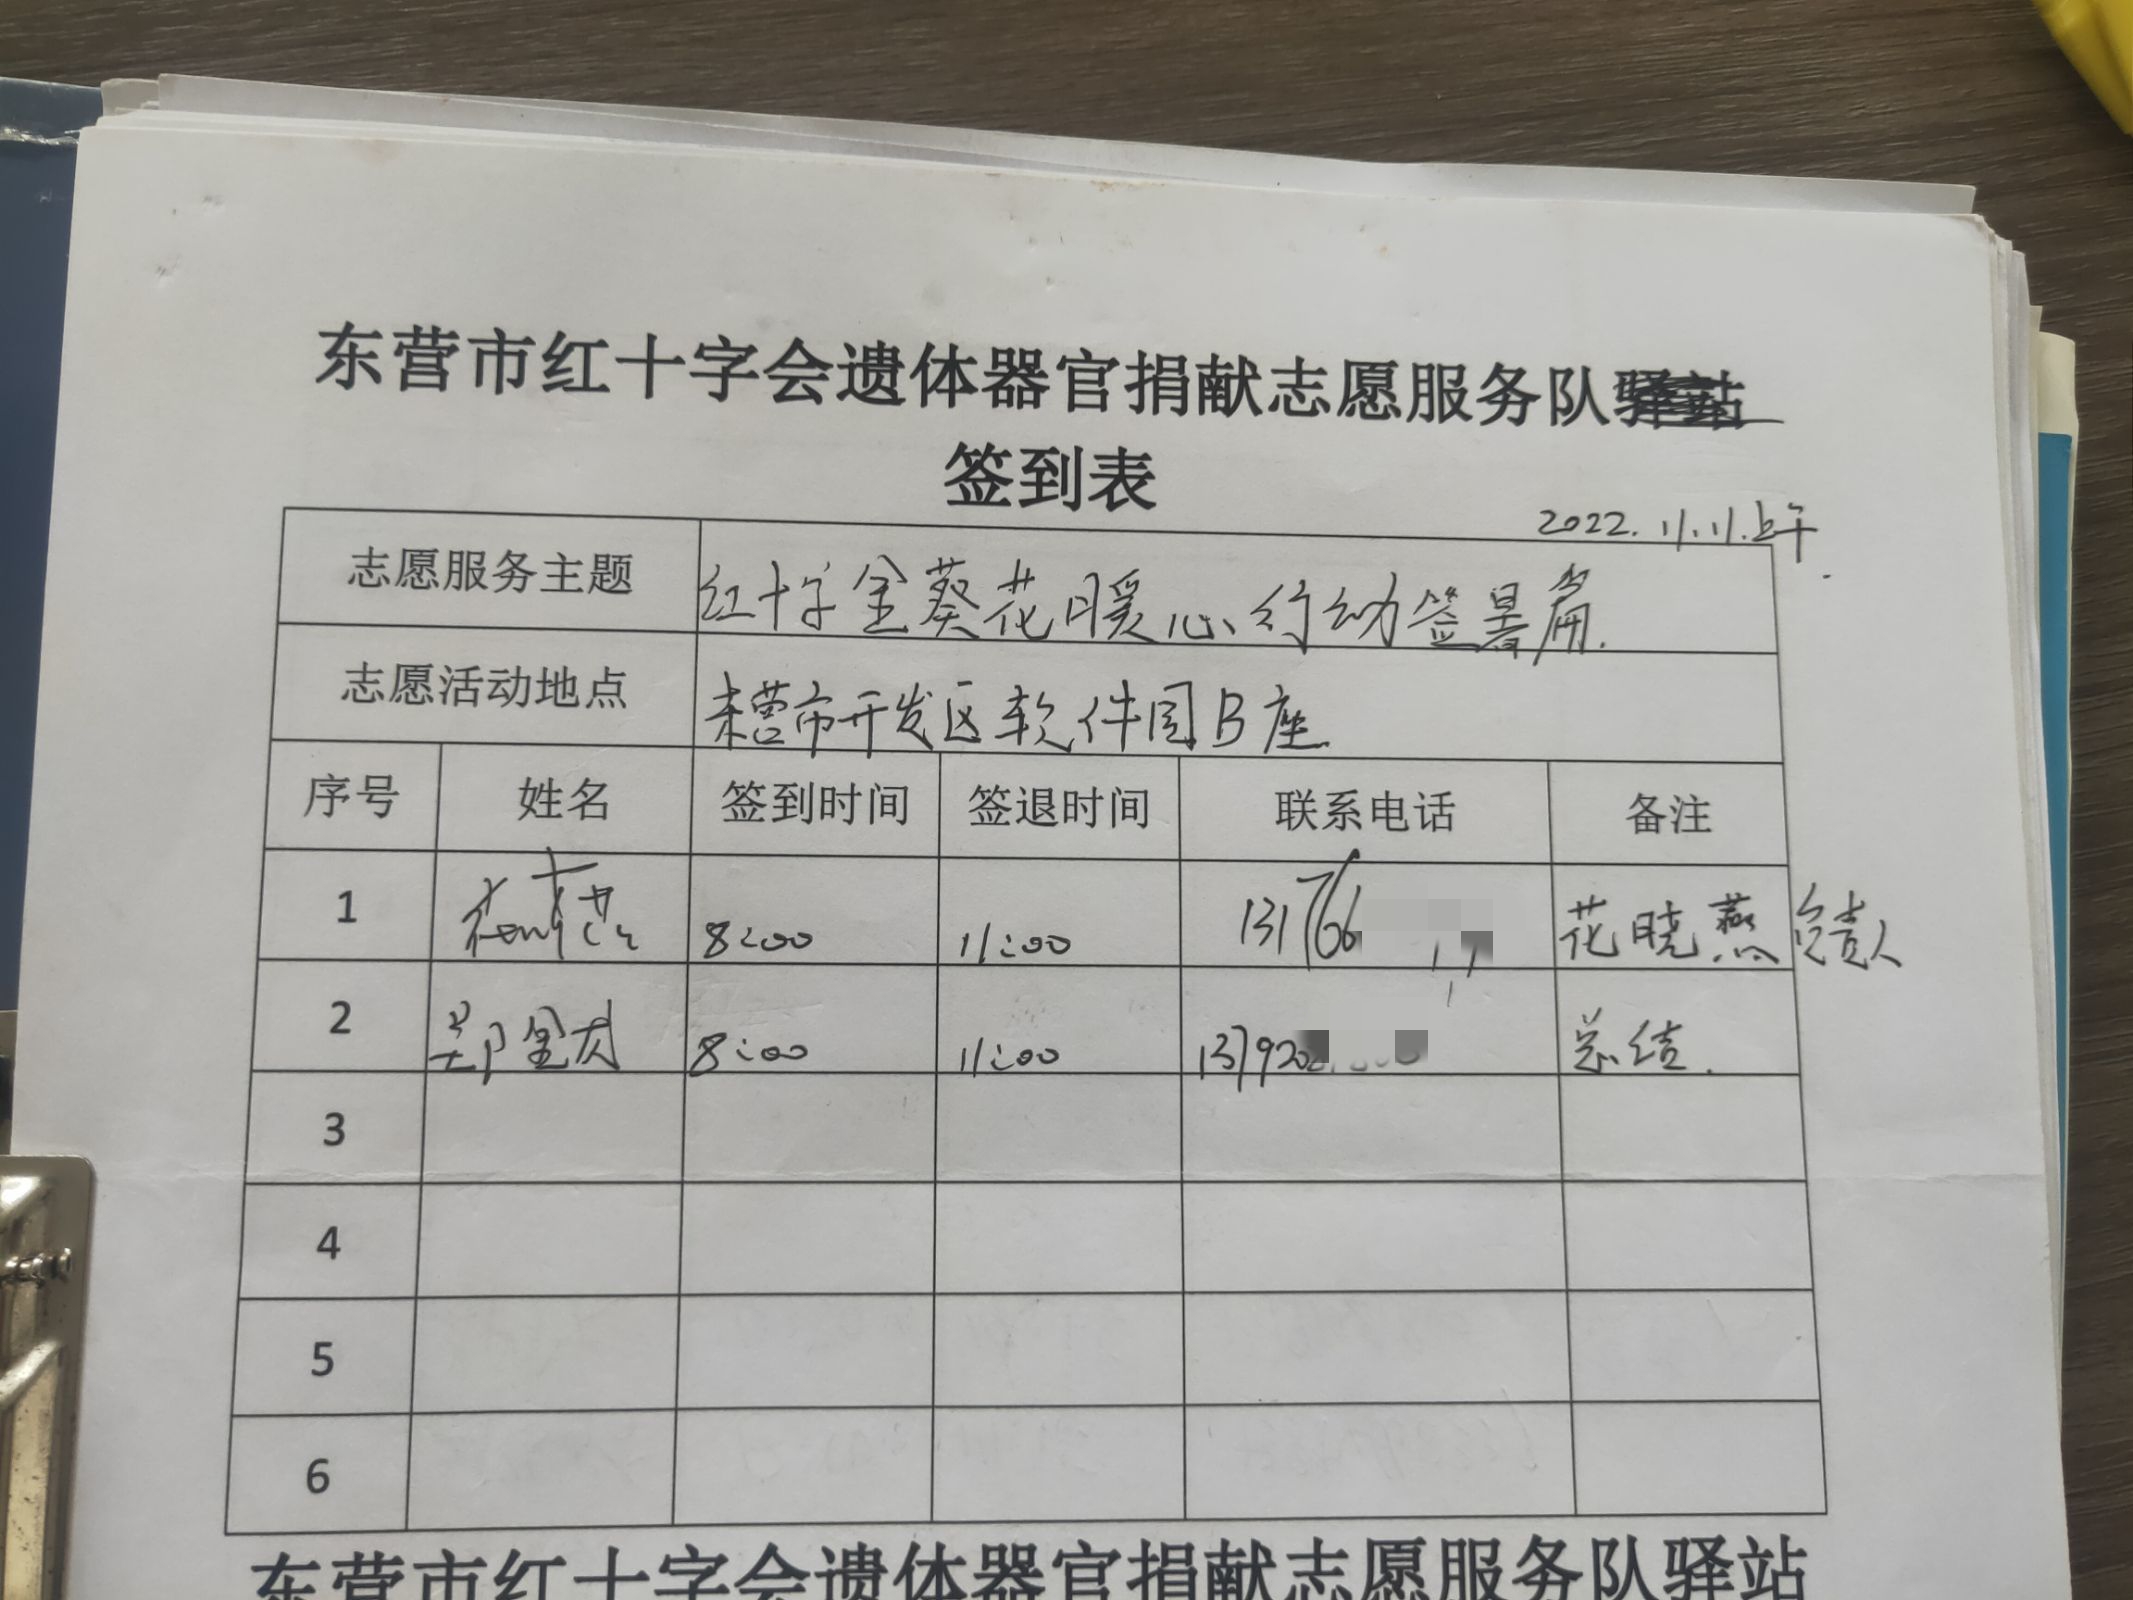 东营市红十字会遗体器官捐献志愿服务队驿站
签到表
2022.11.11.上午
志愿服务主题 红十字金葵花暖心行动签署篇.
志愿活动地点 东营市开发区软件园B座
序号 姓名 签到时间 签退时间 联系电话 备注
1 8:00 11:00 131766 花晓燕负责人
2 8:00 11:00 137920 总结.
3
4
5
6
东营市红十字会遗体器官捐献志愿服务队驿站